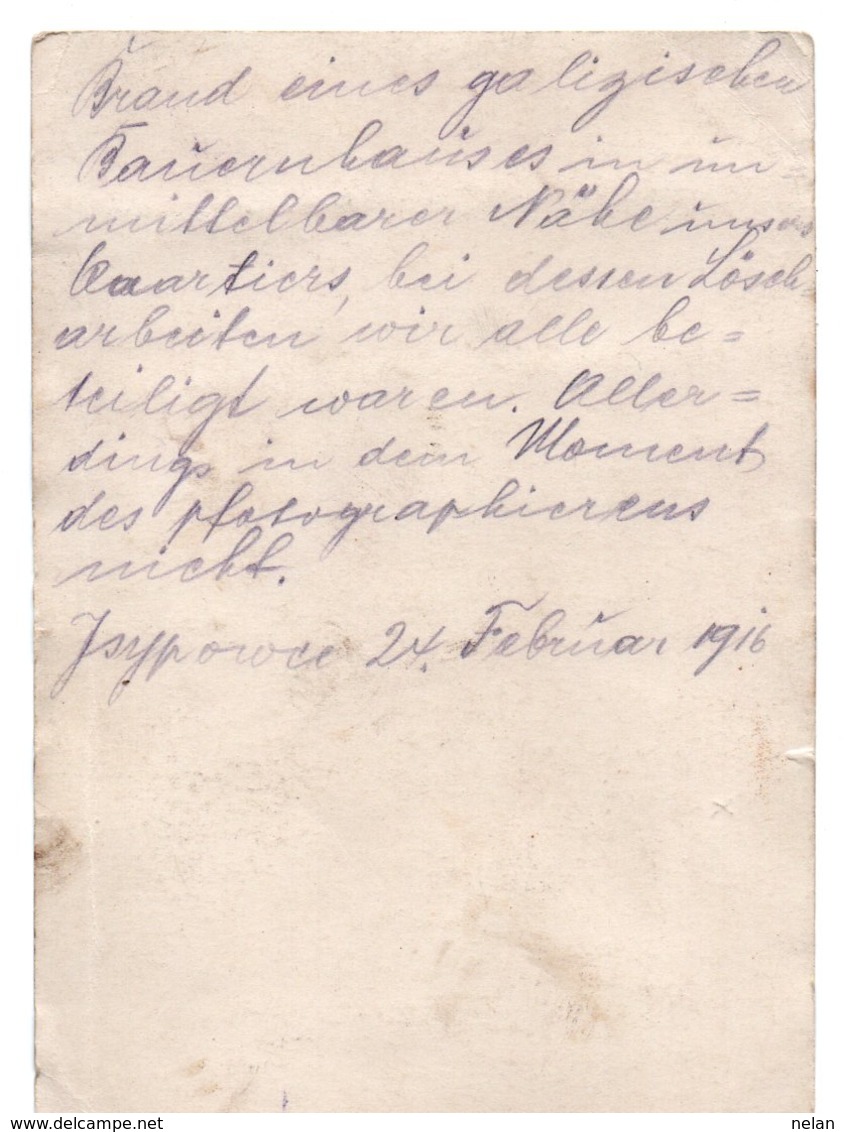 Brand eines galizischen
Bauernhauses in un=
mittelbarer Nähe unsres
Quartiers, bei dessen Lösch
arbeiten wir alle be=
teiligt waren. Aller=
dings in dem Moment
des photographierens
nicht.
24. Februar 1916
www.delcampe.net
nelan